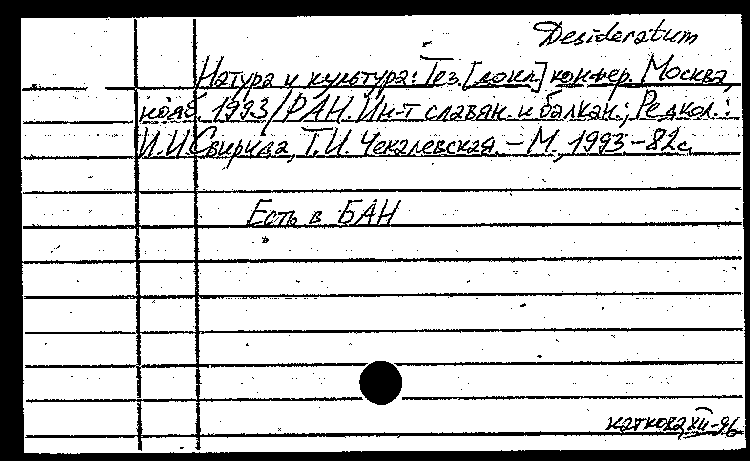 Desideratum
Натура и культура: Тез. [докл.] конфер. Москва,
нояб. 1993/РАН. Ин-т славян. и балкан.; Редкол.:
И.И Свирида, Т.И. Чекалевская. – М., 1993. – 82с.
Есть в БАН
каткова XII-96